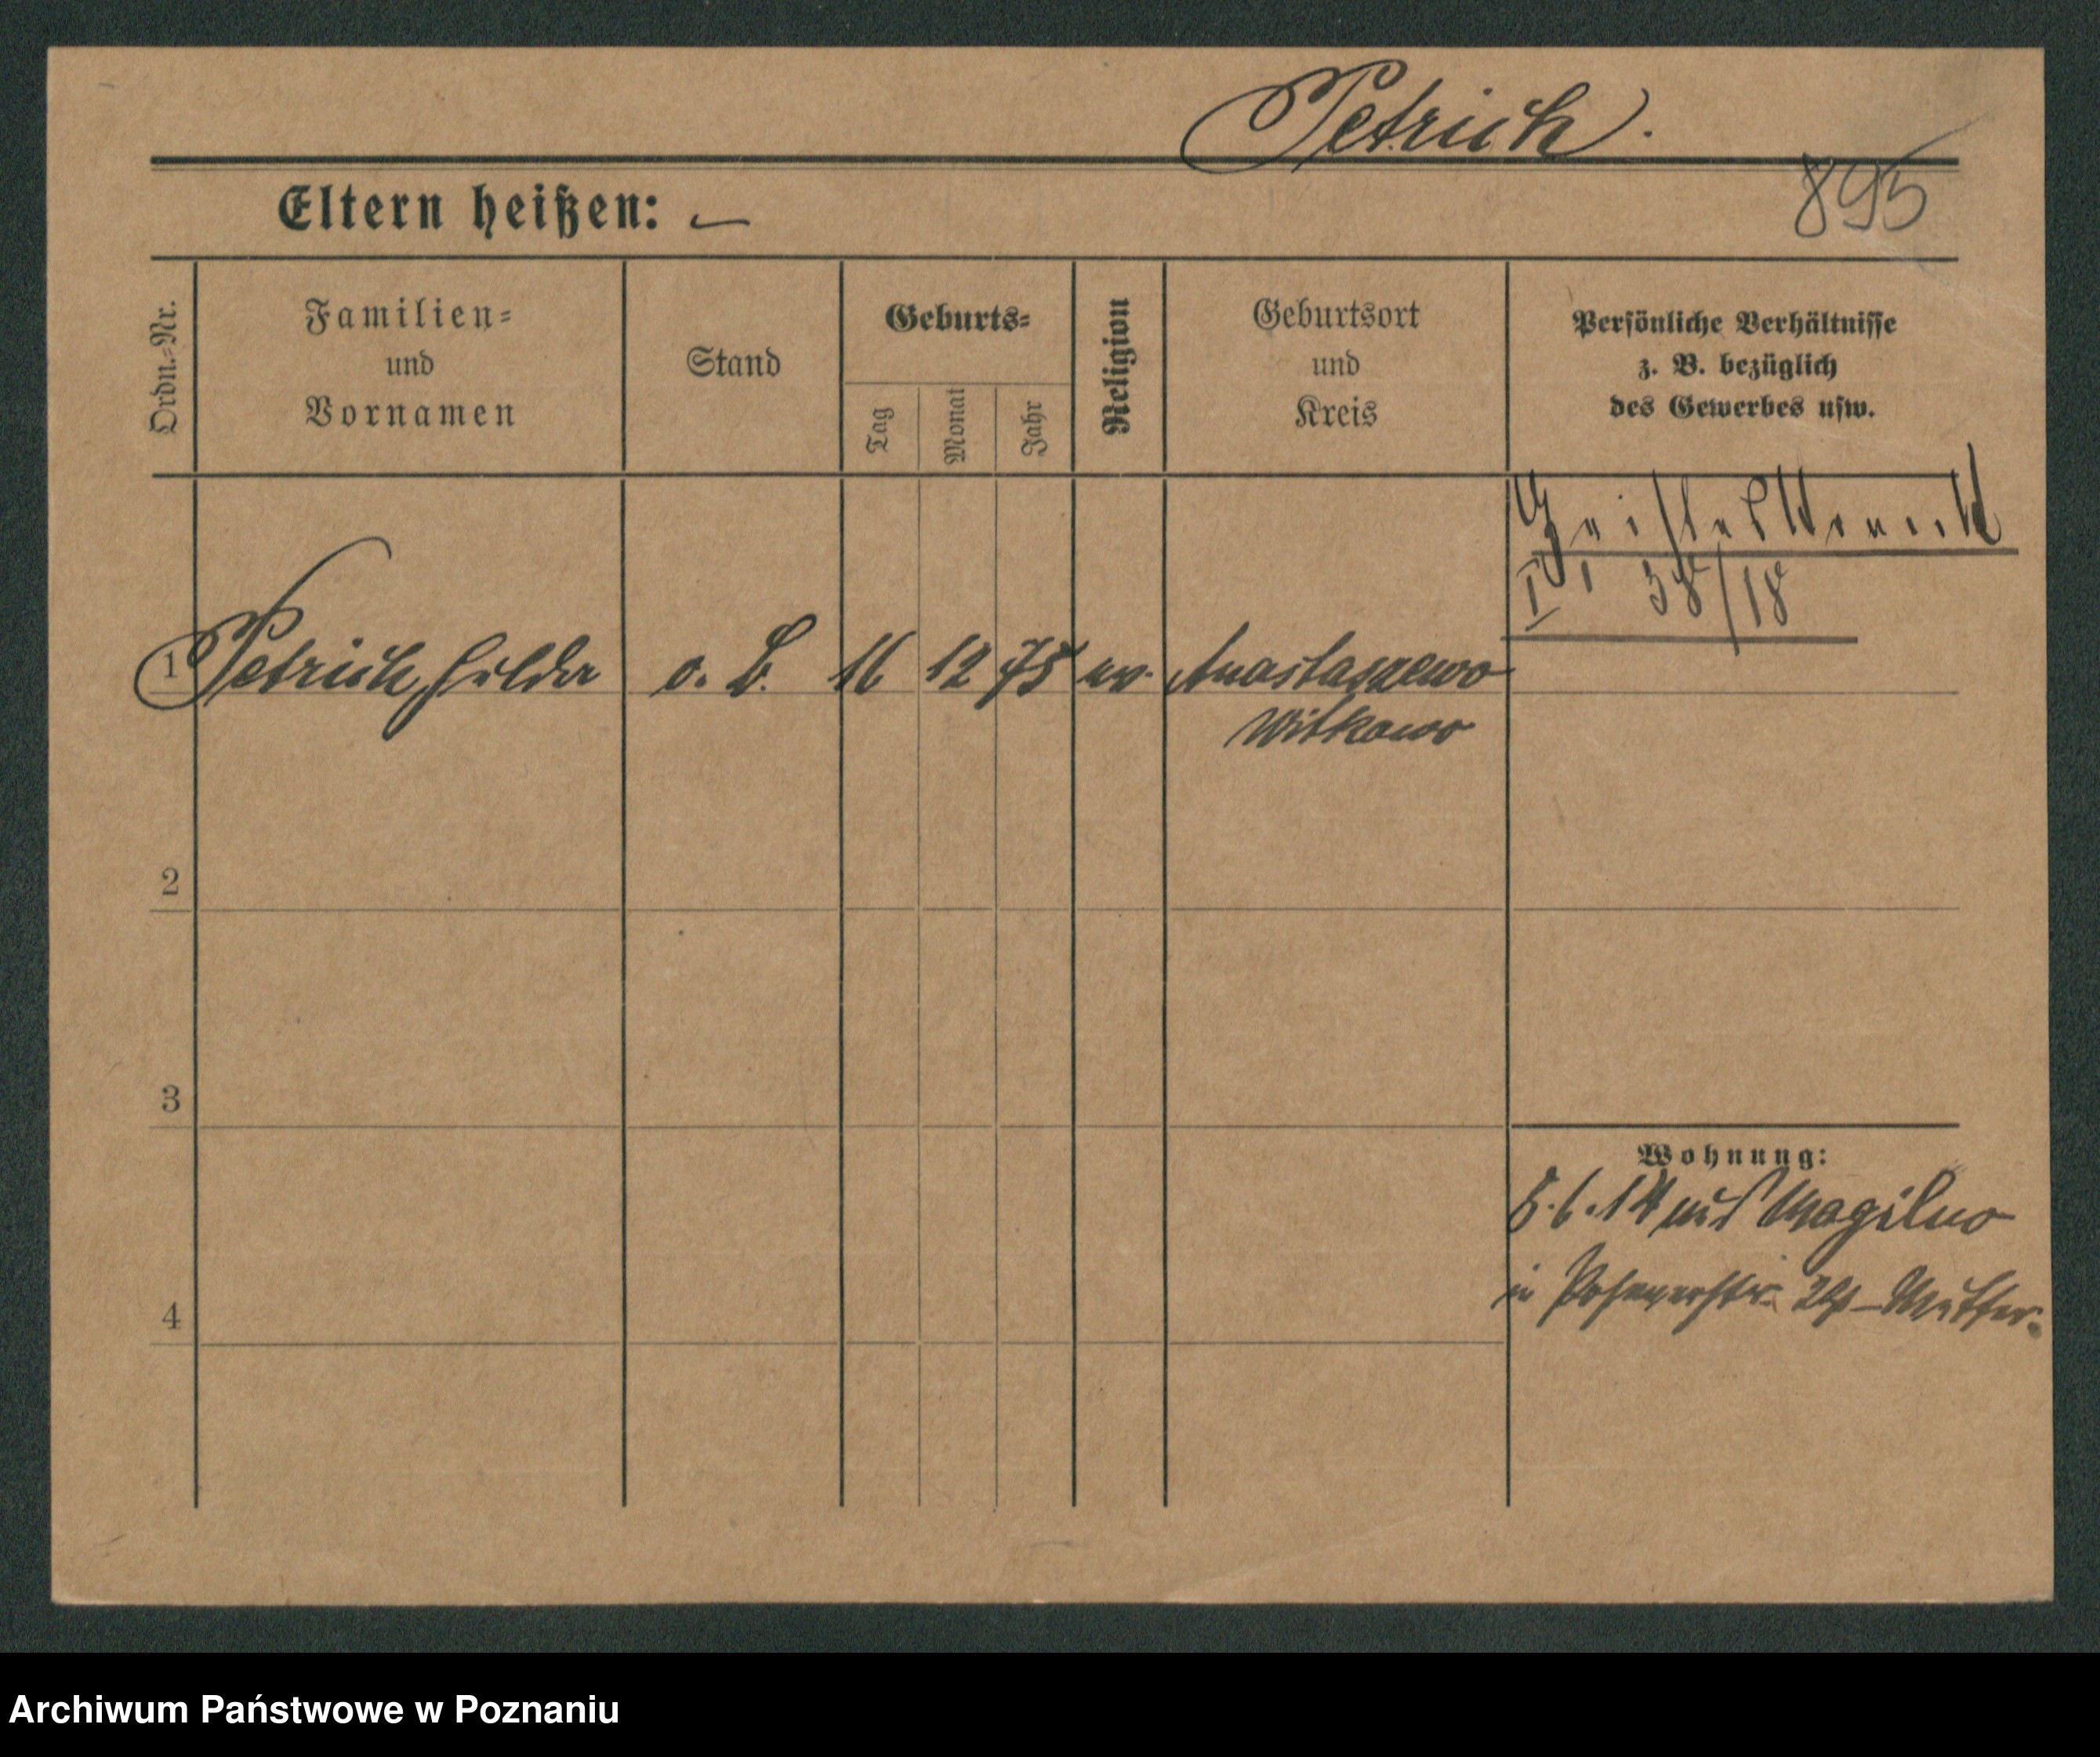 Petrich.
895
Eltern heißen: —
Ordn.-Nr.
Familien-
und
Vornamen
Stand
Geburts-
Tag
Monat
Jahr
Religion
Geburtsort
und
Kreis
Persönliche Verhältnisse
z. B. bezüglich
des Gewerbes usw.
Geisteskrank
38/18
1 Petrich, Hilda o. B. 16 12 75 ev. Anastazewo
Witkowo
2
3
4
Wohnung:
5.6.14 aus Mogilno
in Posenerstr. 24 – Mutter.
Archiwum Państwowe w Poznaniu